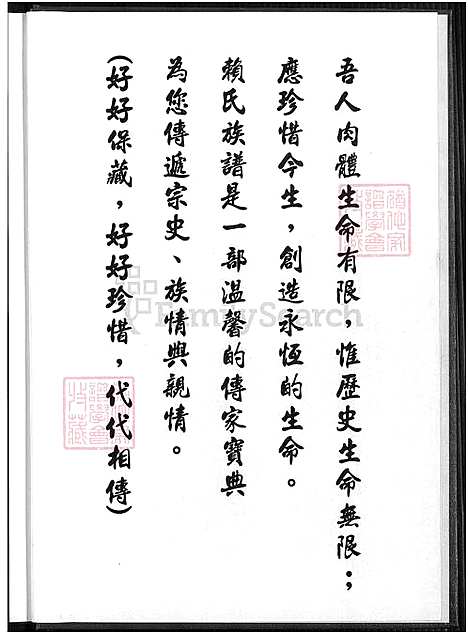 吾人肉體生命有限，惟歷史生命無限；
應珍惜今生，創造永恆的生命。
賴氏族譜是一部溫馨的傳家寶典
為您傳遞宗史、族情與親情。
(好好保藏，好好珍惜，代代相傳)
FamilySearch